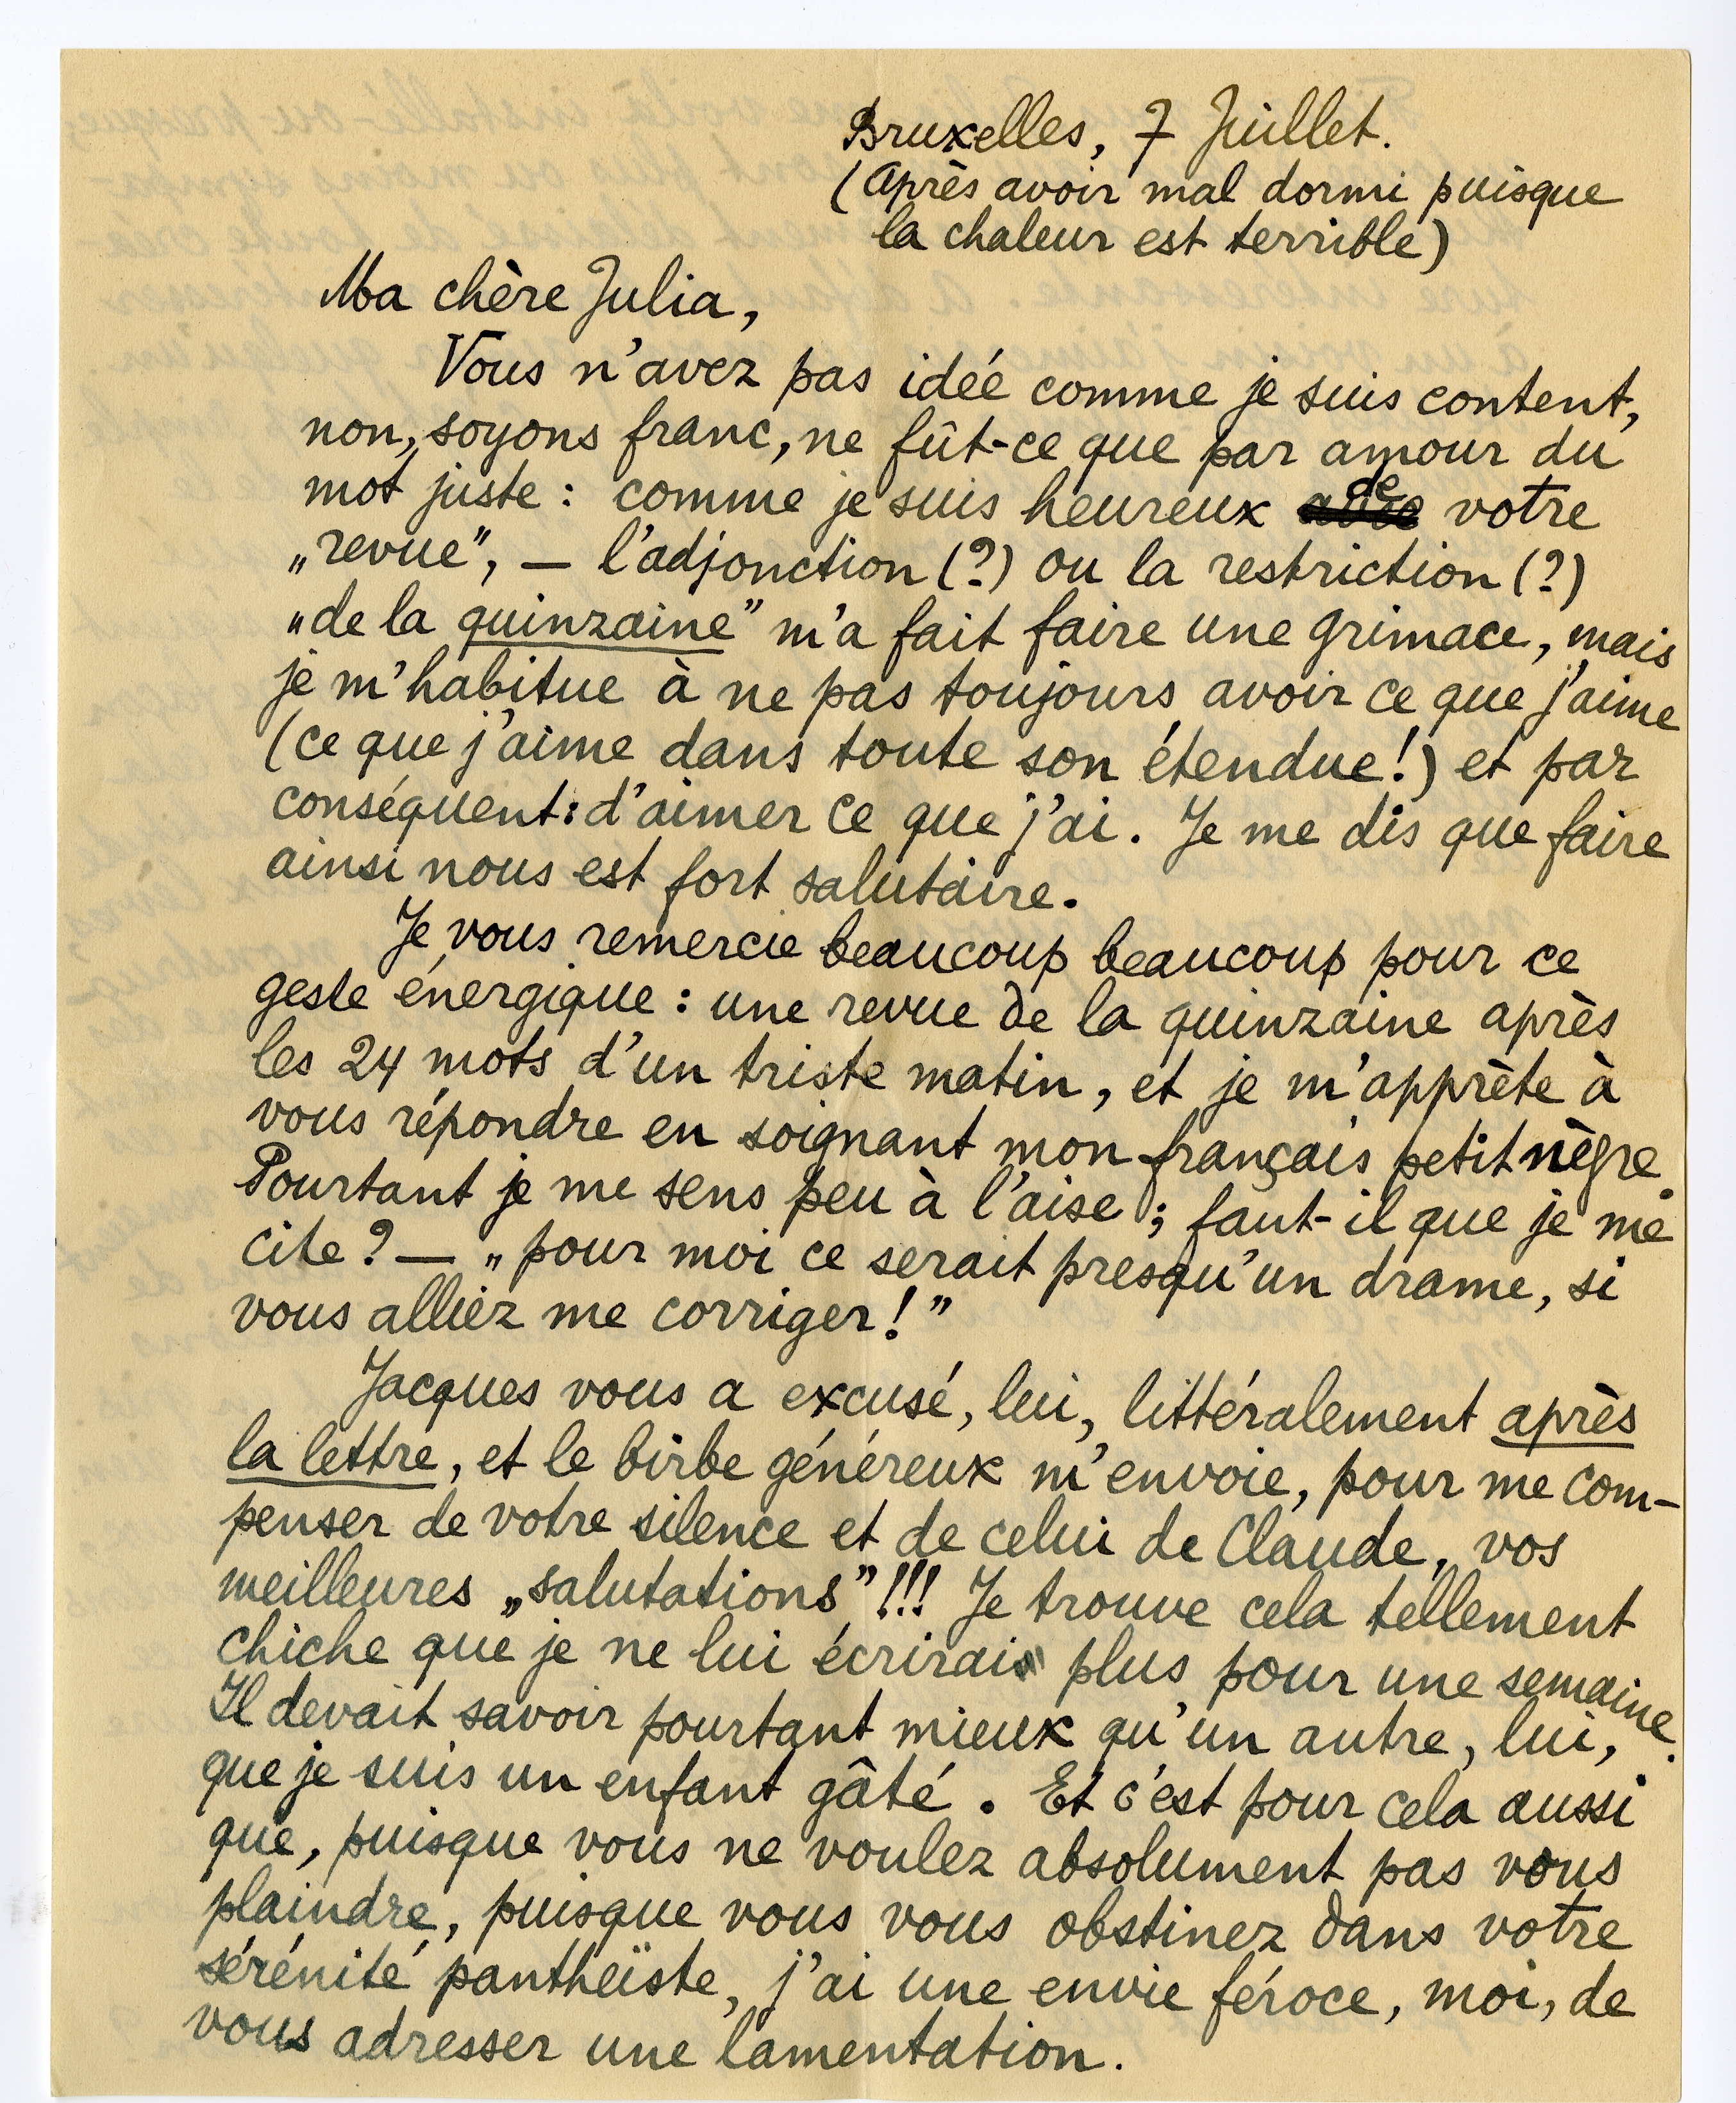 Bruxelles, 7 Juillet.
(Après avoir mal dormi puisque
la chaleur est terrible)
Ma chère Julia,
Vous n'avez pas idée comme je suis content,
non, soyons franc, ne fût-ce que par amour du
mot juste : comme je suis heureux de votre
„revue”, — l'adjonction (?) ou la restriction (?)
„de la quinzaine” m'a fait faire une grimace, mais
je m'habitue à ne pas toujours avoir ce que j'aime
(ce que j'aime dans toute son étendue!) et par
conséquent: d'aimer ce que j'ai. Je me dis que faire
ainsi nous est fort salutaire.
Je vous remercie beaucoup beaucoup pour ce
geste énergique : une revue de la quinzaine après
les 24 mots d'un triste matin, et je m'apprète à
vous répondre en soignant mon français petit nègre.
Pourtant je me sens peu à l'aise ; faut-il que je me
cite ? — „pour moi ce serait presqu'un drame, si
vous alliez me corriger!”
Jacques vous a excusé, lui, littéralement après
la lettre, et le birbe généreux m'envoie, pour me com-
penser de votre silence et de celui de Claude, vos
meilleures „salutations”!!! Je trouve cela tellement
chiche que je ne lui écrirai plus pour une semaine.
Il devait savoir pourtant mieux qu'un autre, lui,
que je suis un enfant gâté. Et c'est pour cela aussi
que, puisque vous ne voulez absolument pas vous
plaindre, puisque vous vous obstinez dans votre
sérénité panthéïste, j'ai une envie féroce, moi, de
vous adresser une lamentation.